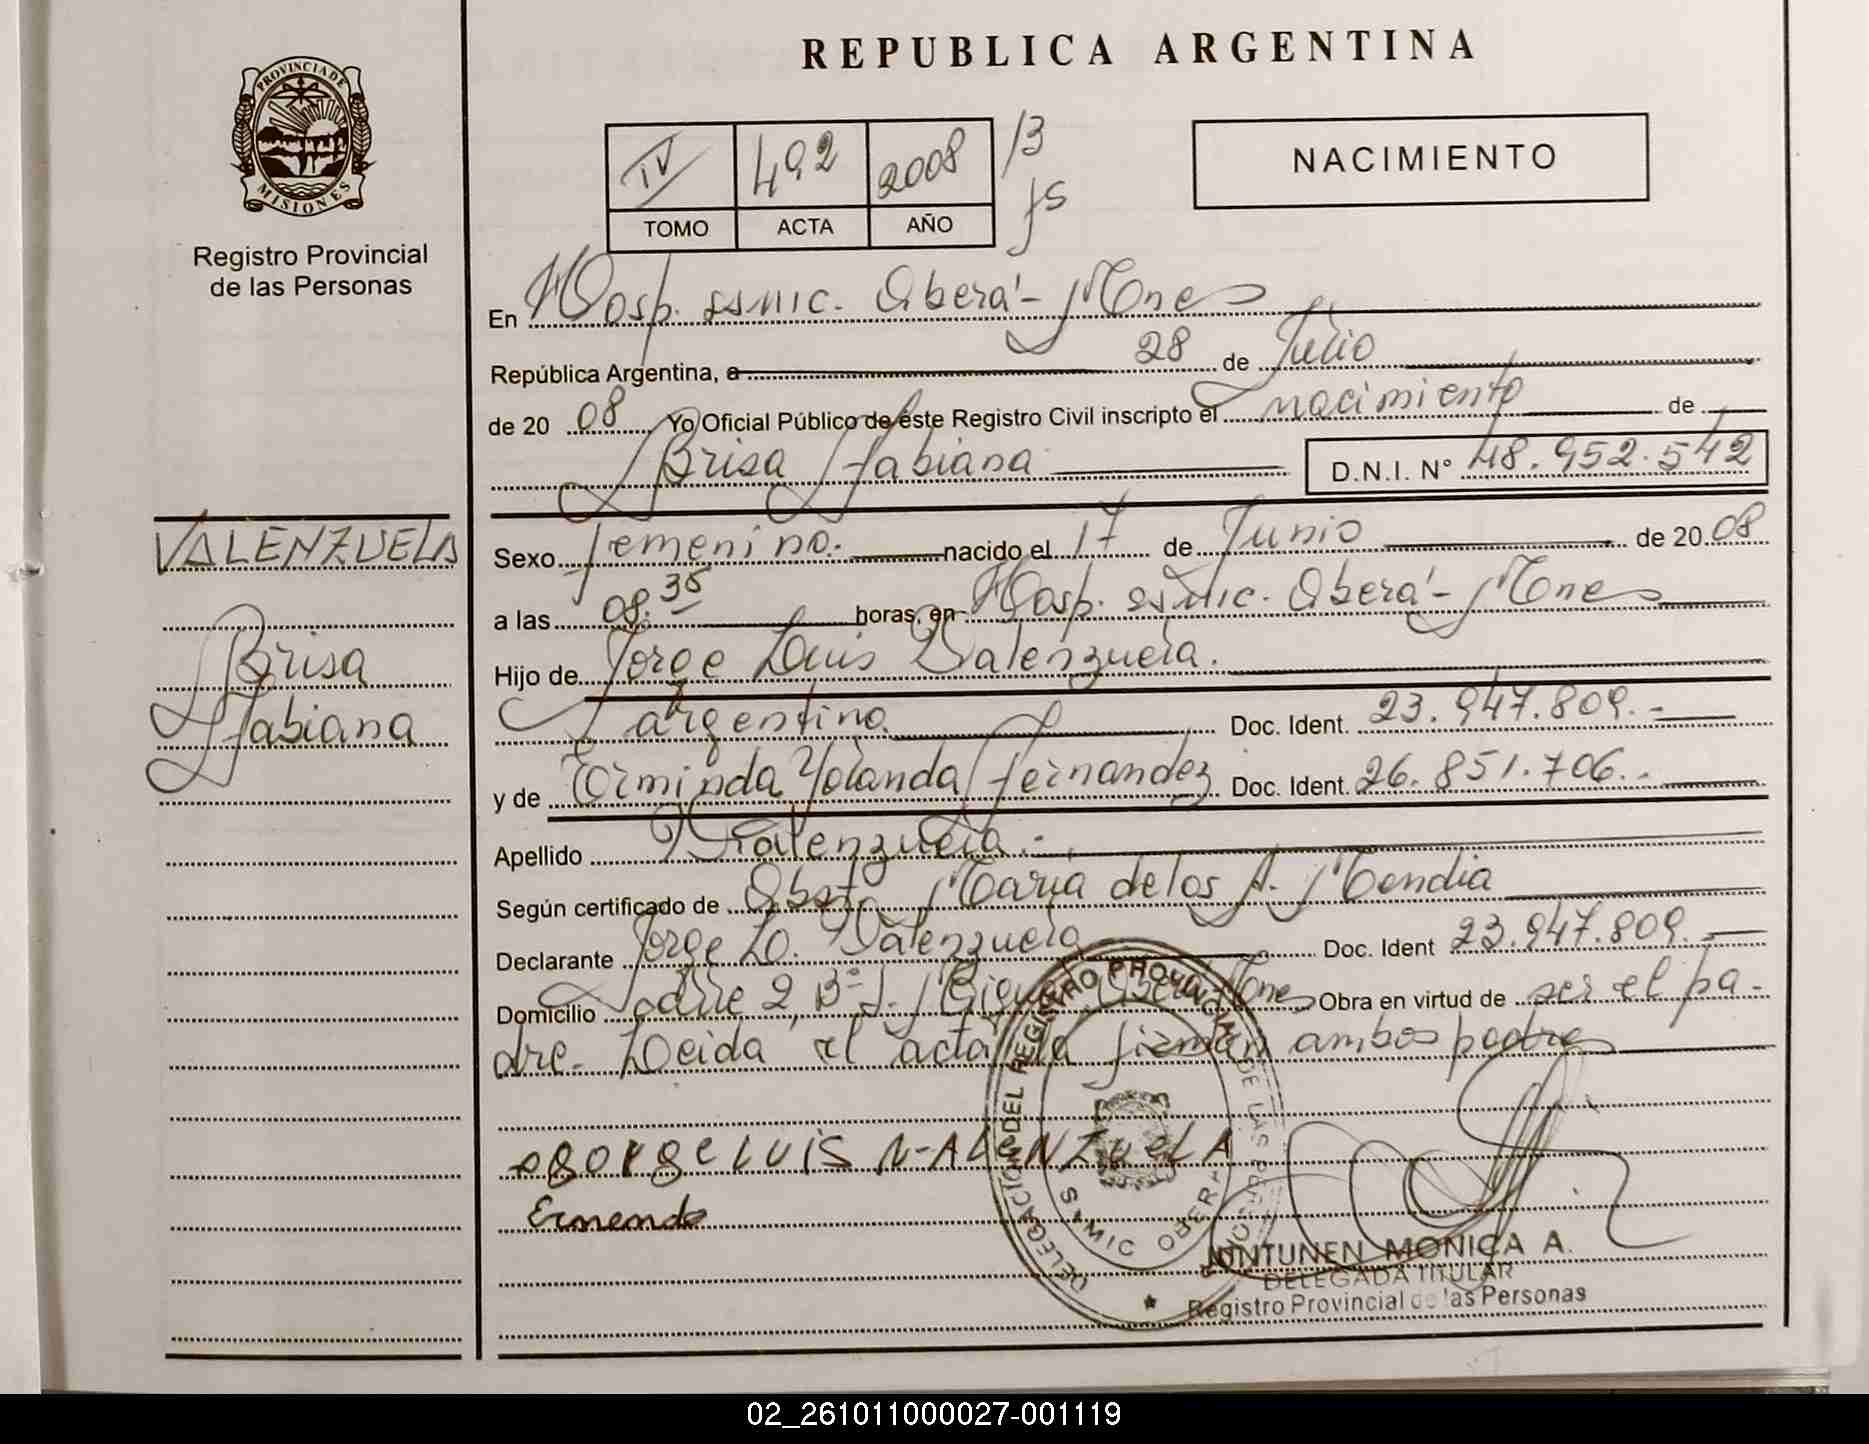 REPUBLICA ARGENTINA
PROVINCIA DE
MISIONES
Registro Provincial
de las Personas
IV 492 2008 13
TOMO ACTA AÑO fs
NACIMIENTO
En Hosp. SSMIC. Oberá - Mnes
República Argentina, a 28 de Julio
de 20 08 Yo Oficial Público de este Registro Civil inscripto el nacimiento de
Brisa Fabiana D.N.I. N° 48.952.542
VALENZUELA
Brisa
Fabiana
Sexo femenino. nacido el 17 de Junio de 20 08
a las 08.35 horas, en Hosp. SSMIC. Oberá - Mnes
Hijo de Jorge Luis Valenzuela.
argentino Doc. Ident. 23.947.809.-
y de Erminda Yolanda Fernandez Doc. Ident. 26.851.706.-
Apellido Valenzuela.-
Según certificado de Obst. Maria de los A. Mendia
Declarante Jorge L. Valenzuela Doc. Ident 23.947.809.-
Domicilio 2, B° Mnes Obra en virtud de ser el pa-
dre. Leida el acta la firman ambos padres
LUIS VALENZUELA
DELEGACION DEL REGISTRO PROVINCIAL DE LAS PERSONAS
SAMIC OBERA
JUNTUNEN MONICA A.
DELEGADA TITULAR
Registro Provincial de las Personas
02_261011000027-001119